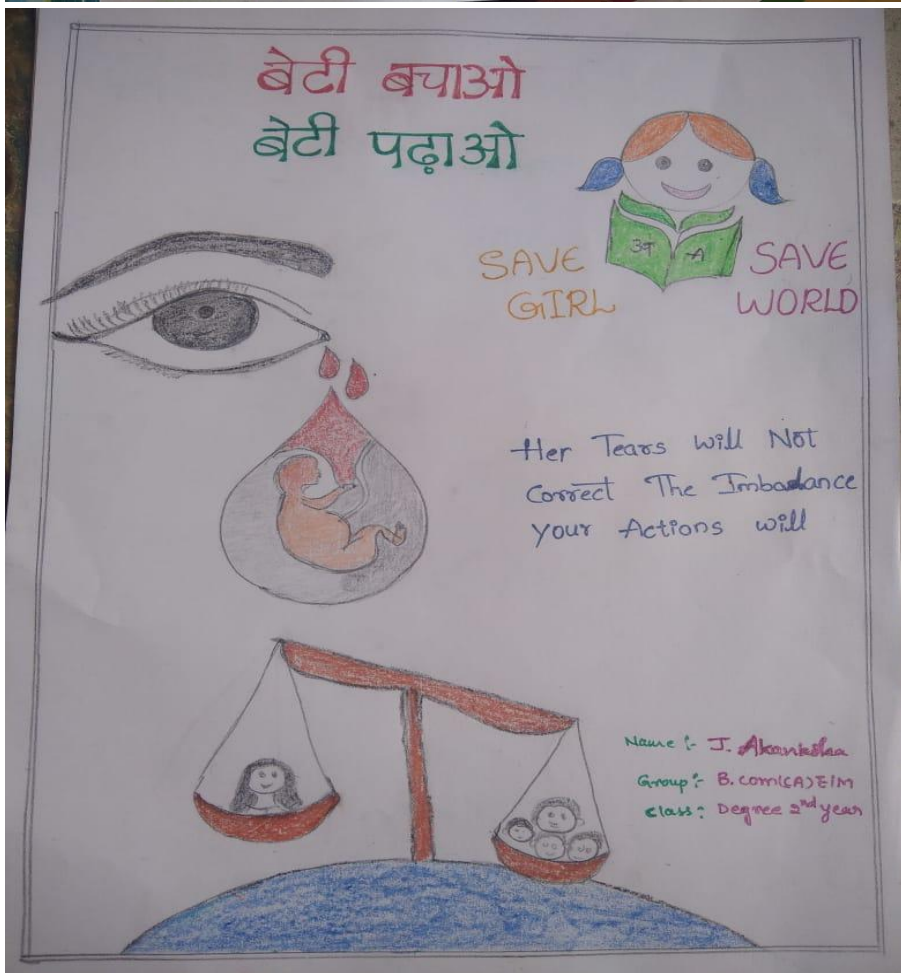 बेटी बचाओ
बेटी पढ़ाओ
अ A
SAVE GIRL
SAVE WORLD
Her Tears Will Not
Correct The Imbalance
Your Actions Will
Name :- J. Akanksha
Group :- B.com(CA) E/M
Class : Degree 2nd year